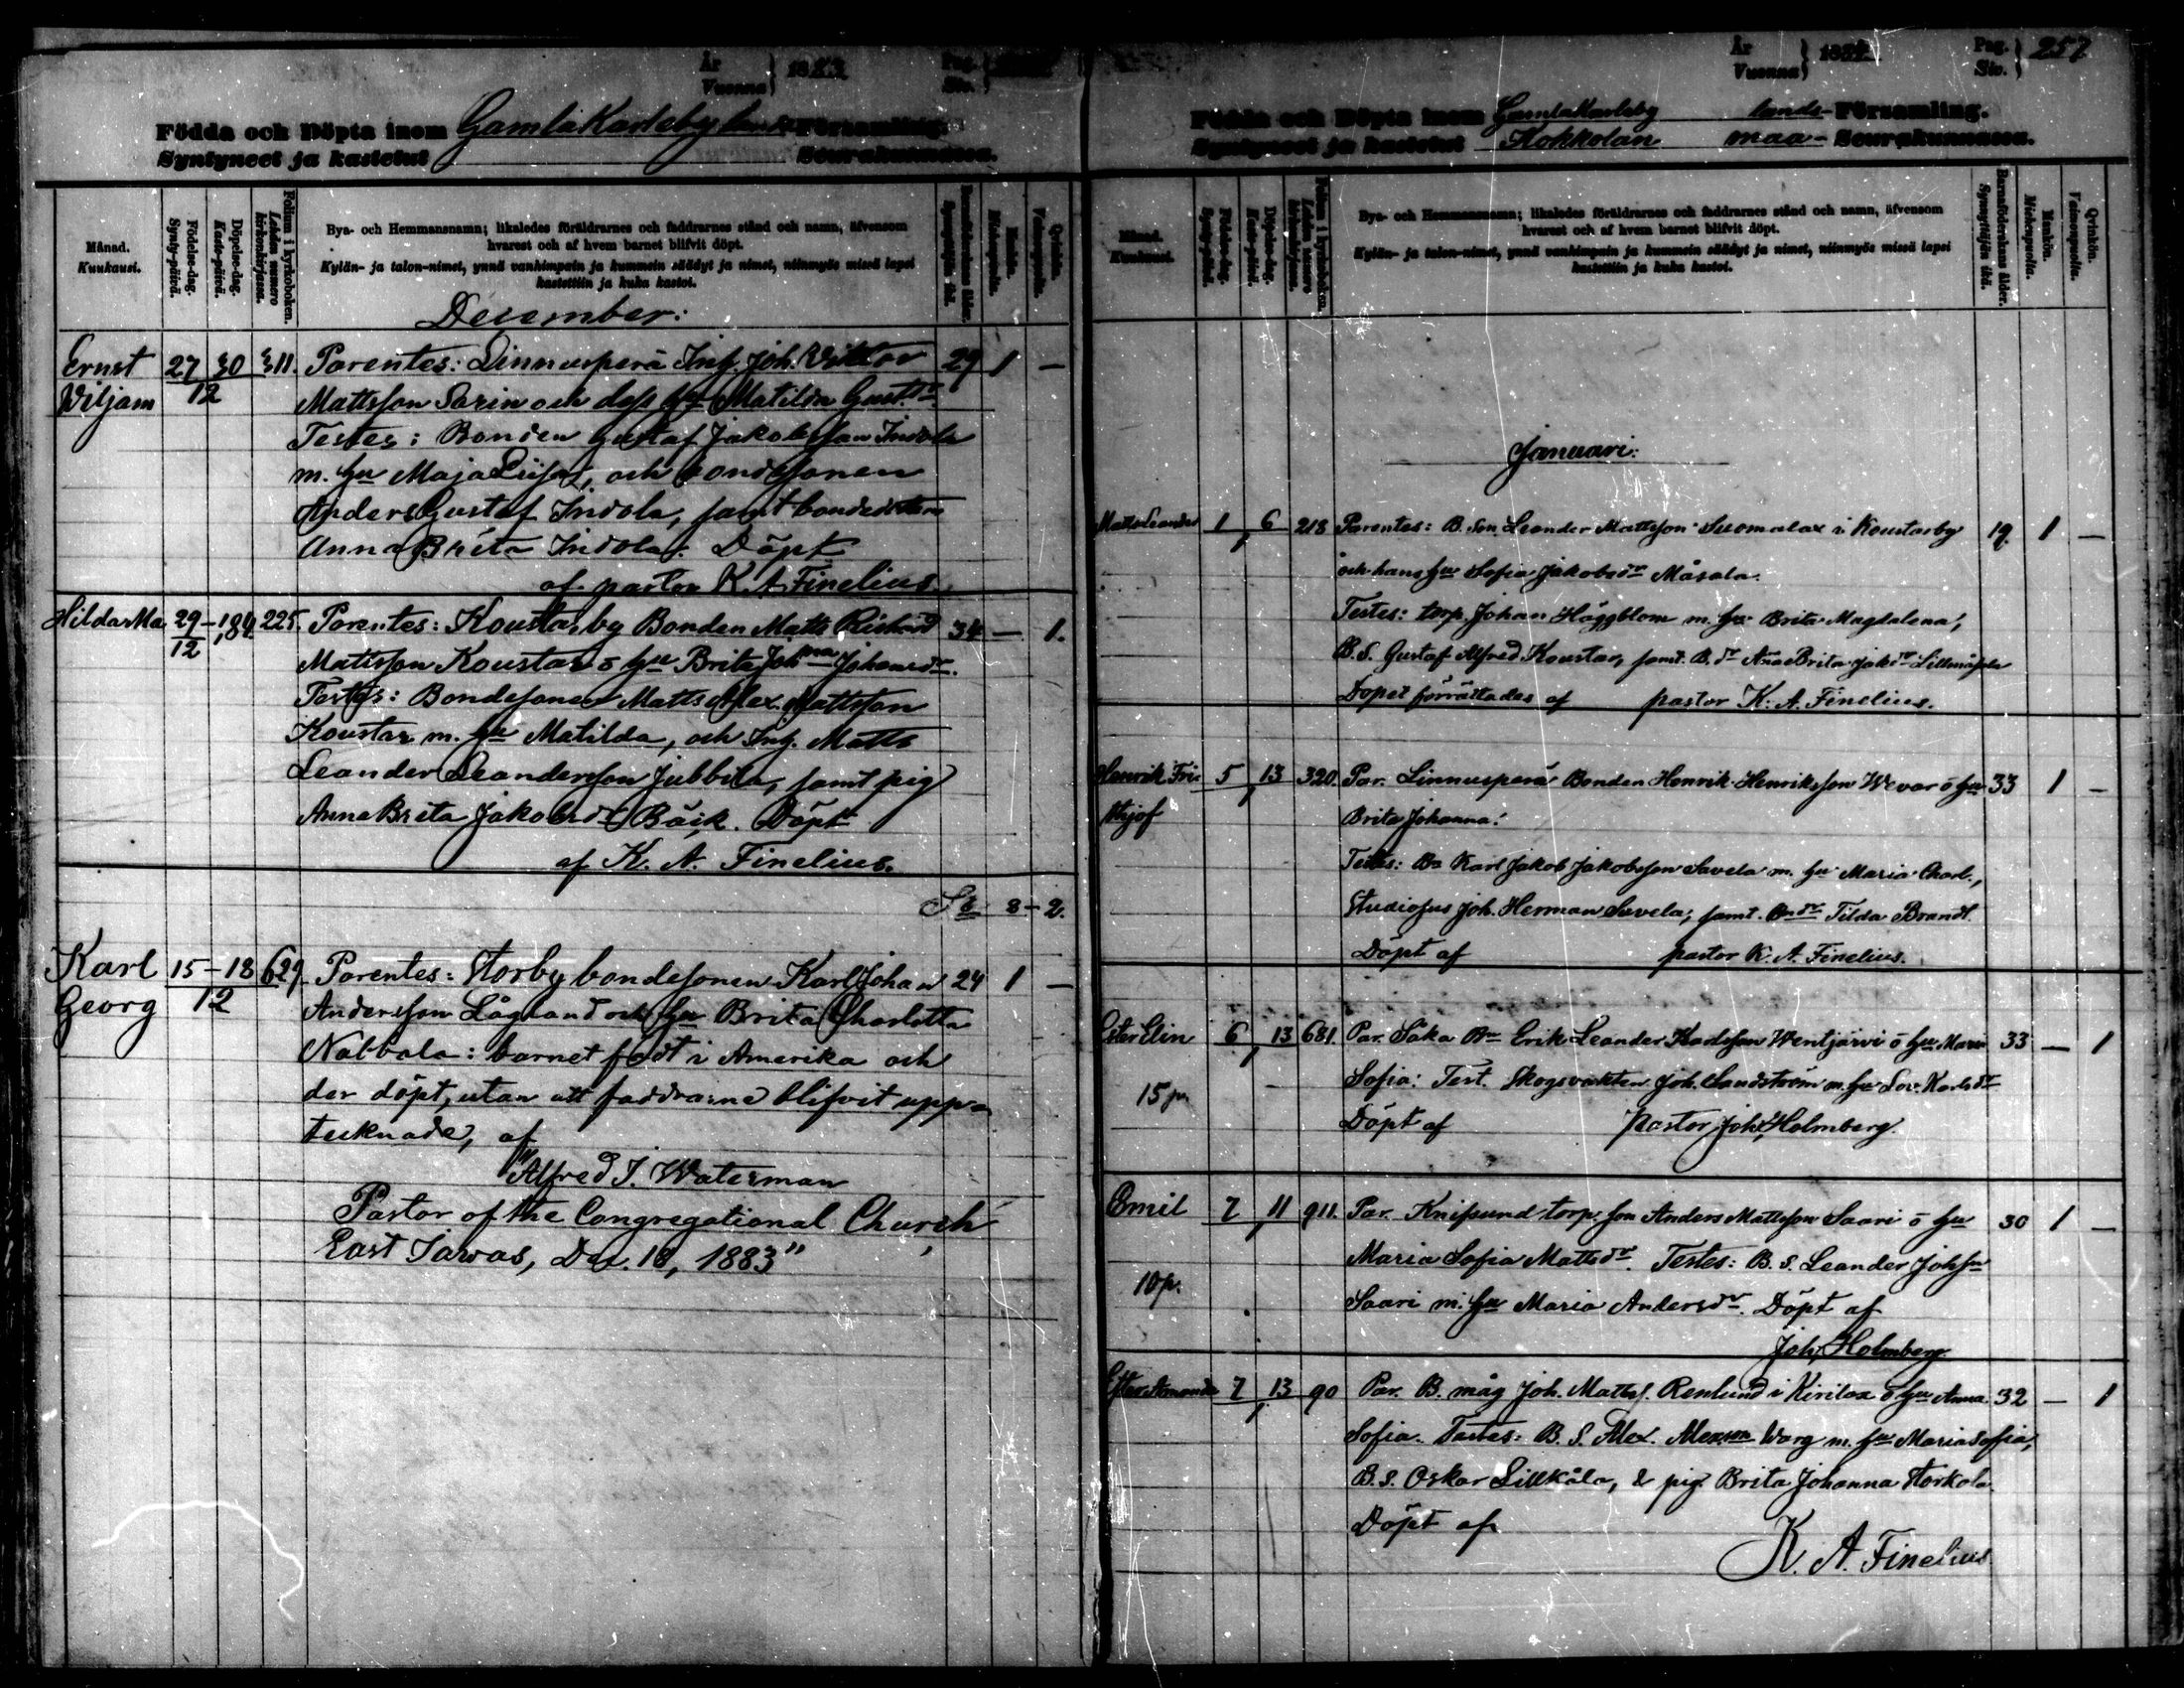 År Vuonna } 1883 Pag. Siv. }
Födda och Döpta inom Gamlakarleby lands Församling.
Syntyneet ja kastetut Seurakunnassa.
Månad. Kuukausi.
Födelse-dag. Synty-päivä.
Döpelse-dag. Kaste-päivä.
Folium i kyrkoboken. Lehden numero kirkonkirjassa.
Bya- och Hemmansnamn; likaledes föräldrarnes och faddrarnes stånd och namn, äfvensom
hvarest och af hvem barnet blifvit döpt.
Kylän- ja talon-nimet, ynnä vanhimpain ja kummein säädyt ja nimet, niinmyös missä lapsi
kastettiin ja kuka kastoi.
Barnaföderskans ålder. Synnyttäjän ikä.
Mankön. Miehenpuolia.
Qvinkön. Vaimonpuolia.
December:
Ernst 27 30 311. Parentes: Linnusperä Inh. Joh. Viktor 29 1 —
Wiljam 12 Mattsson Sarin och dess hu Matilda Gust.dr.
Testes: Bonden Gustaf Jakobsson Indola
m. hu Maja Liisa, och bondesonen
Anders Gustaf Indola, samt bondedottern
Anna Brita Indola. Döpt
af pastor K. A. Finelius.
Hilda Ma 29 – 1,84. 225. Parentes: Koustarby Bonden Matts Rickard 34 — 1.
12 Mattsson Koustar o hu Brita Johna Johansdr.
Testes: Bondesonen Matts Alex. Mattsson
Koustar m. hu Matilda, och Inh. Matts
Leander Leandersson Jubbila, samt pig
Anna Brita Jakobsdr Bäck. Döpt
af K. A. Finelius.
Sa 8 – 2.
Karl 15–18 629. Parentes: Storby bondesonen Karl Johan 24 1 —
Georg 12 Andersson Lågland och hu Brita Charlotta
Nabbala: barnet födt i Amerika och
der döpt, utan att faddrarne blifvit upp-
tecknade, af
"Alfred J. Waterman
Pastor of the Congregational Church
East Tawas, Dec. 18, 1883"
År Vuonna } 1884. Pag. Siv. } 257
Födda och Döpta inom Gamlakarleby lands- Församling.
Syntyneet ja kastetut Kokkolan maa- Seurakunnassa.
Månad. Kuukausi.
Födelse-dag. Synty-päivä.
Döpelse-dag. Kaste-päivä.
Folium i kyrkoboken. Lehden numero kirkonkirjassa.
Bya- och Hemmansnamn; likaledes föräldrarnes och faddrarnes stånd och namn, äfvensom
hvarest och af hvem barnet blifvit döpt.
Kylän- ja talon-nimet, ynnä vanhimpain ja kummein säädyt ja nimet, niinmyös missä lapsi
kastettiin ja kuka kastoi.
Barnaföderskans ålder. Synnyttäjän ikä.
Mankön. Miehenpuolia.
Qvinkön. Vaimonpuolia.
Januari:
Matts Leander 1 6 218 Parentes: B. son Leander Mattsson Suomalax i Koustarby 19. 1 —
1 och hans hu Sofia Jakobsdr Måsala.
Testes: torp. Johan Häggblom m. hu Brita Magdalena,
B. S. Gustaf Alfred Koustar, samt B. dr Anna Brita Jakdr Lillmåsala
Dopet förrättades af pastor K. A. Finelius.
Henrik Fri- 5 13 320. Par. Linnusperä Bonden Henrik Henriksson Wevar o hu 33 1 —
thjof 1 Brita Johanna.
Testes: Bn Karl Jakob Jakobsson Savela m. hu Maria Charl.,
Studiosus Joh. Herman Savela, samt Bndr Tilda Brandt.
Döpt af pastor K. A. Finelius.
Ester Elin 6 13 681. Par. Såka Bn Erik Leander Karlsson Wentjärvi o hu Maria 33 — 1
1 Sofia: Test. Skogsvakten Joh. Sandström m. hu Lov. Karlsdr
15 p. Döpt af Pastor Joh. Holmberg.
Emil 7 11 911. Par. Knifsund torp. son Anders Mattsson Saari o hu 30 1 —
1 Maria Sofia Mattsdr. Testes: B. S. Leander Johsn
10 p. Saari m. hu Maria Andersdr. Döpt af
Joh. Holmberg
Ester Amanda 7 13 90 Par. B. måg Joh. Matts. Renlund i Kirilax o hu Anna 32 — 1
1 Sofia. Testes: B. S. Alex. Alexson Warg m. hu Maria Sofia,
B. S. Oskar Lillkåla, & pig. Brita Johanna Storkåla
Döpt af
K. A. Finelius